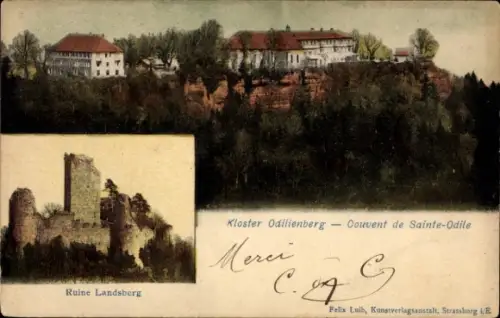 Kloster Odilienberg — Couvent de Sainte-Odile
Merci
Ruine Landsberg
Felix Luib, Kunstverlagsanstalt, Strassburg i.E.